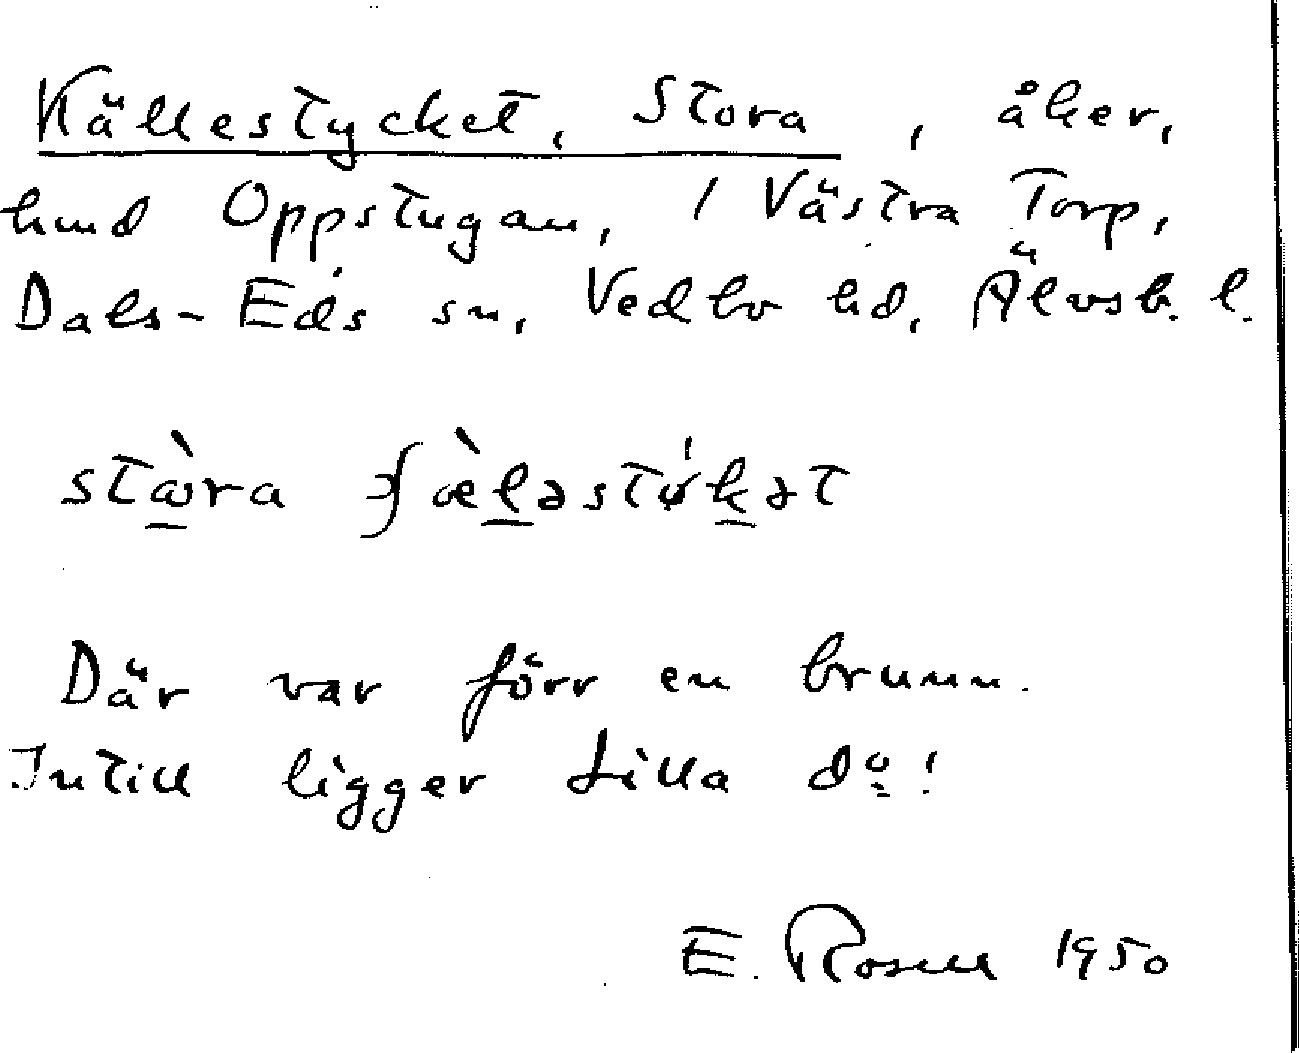 Källestycket, Stora, åker,
hmd Oppstugan, i Västra Torp,
Dals-Eds sn, Vedbo hd, Älvsb. l.
Där var förr en brunn.
Intill ligger Lilla do!
E. Rosell 1950